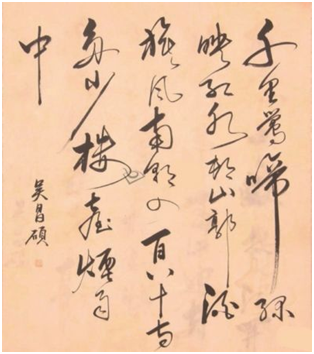 千里鶯啼綠
映紅水村山郭酒
旗風南朝四百八十寺
多少樓臺煙雨
中
吳昌碩